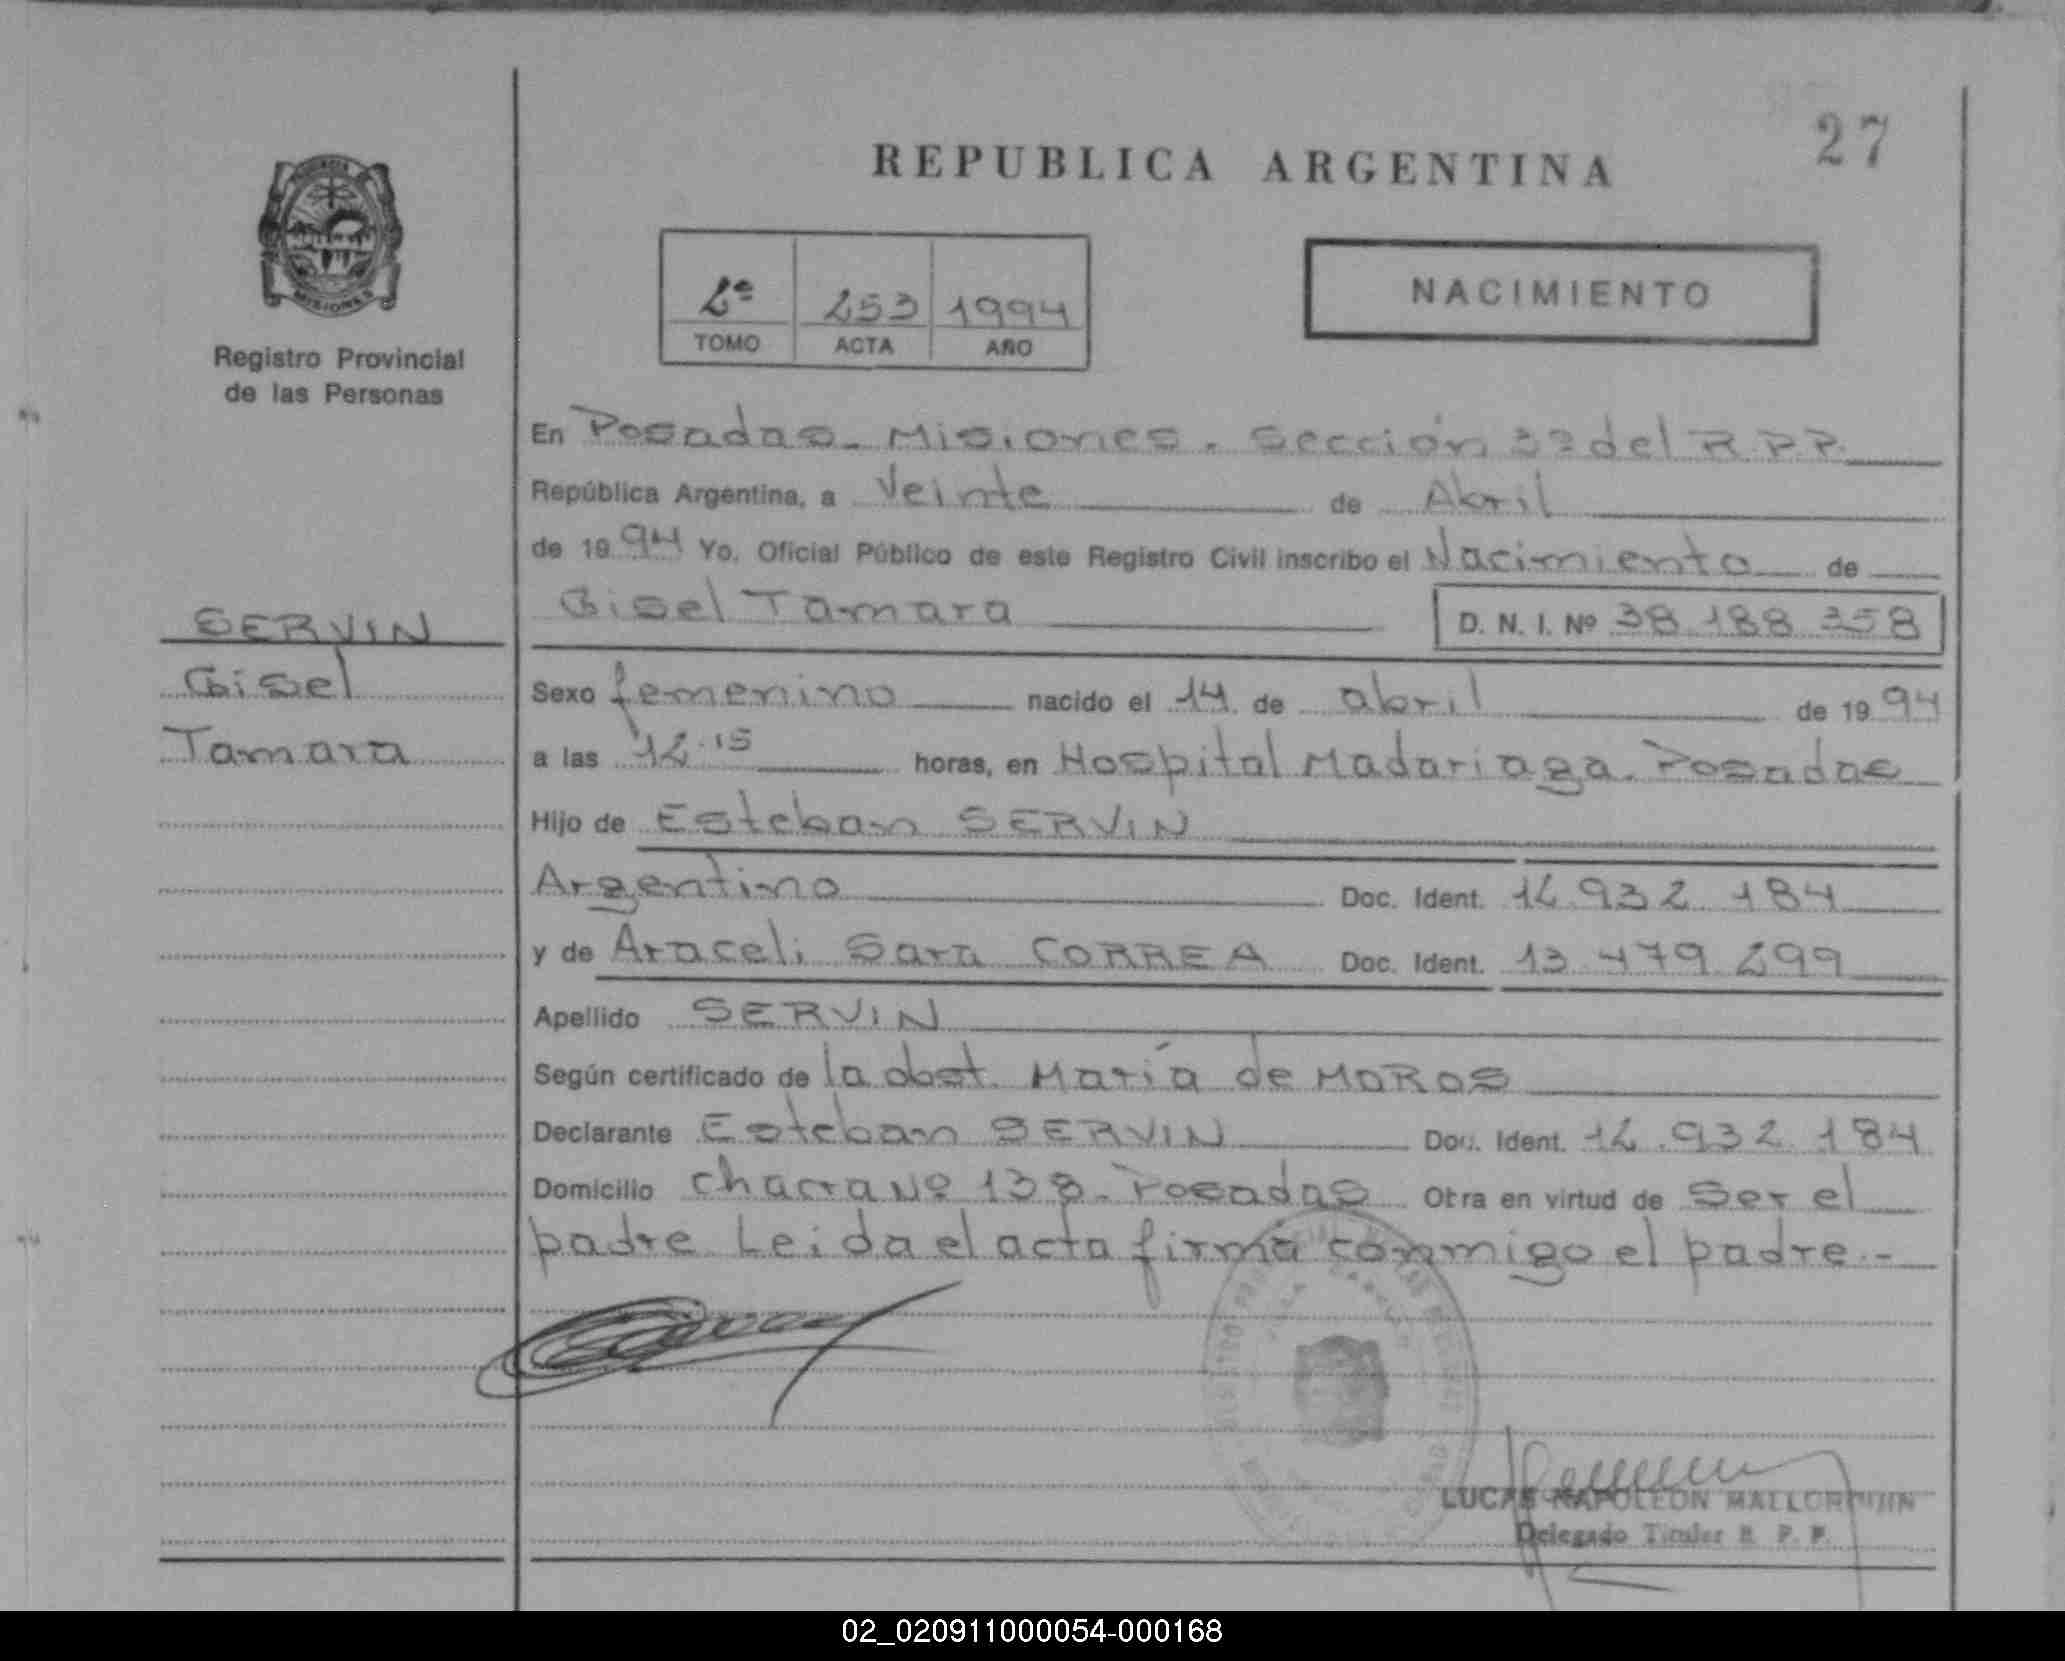 27
REPUBLICA ARGENTINA
MISIONES
2º 253 1994
TOMO ACTA AÑO
NACIMIENTO
Registro Provincial
de las Personas
En Posadas - Misiones. Sección 3º del R.P.P.
República Argentina, a Veinte de Abril
de 1994 Yo, Oficial Público de este Registro Civil inscribo el Nacimiento de
Gisel Tamara D. N. I. Nº 38.188.358
SERVIN
Gisel
Tamara
Sexo femenino nacido el 14 de abril de 1994
a las 12.15 horas, en Hospital Madariaga. Posadas
Hijo de Esteban SERVIN
Argentino Doc. Ident. 12.932.184
y de Araceli Sara CORREA Doc. Ident. 13.479.299
Apellido SERVIN
Según certificado de la obst. María de MOROS
Declarante Esteban SERVIN Doc. Ident. 12.932.184
Domicilio Chacra Nº 138 - Posadas Obra en virtud de Ser el
padre. Leida el acta firma conmigo el padre.-
LUCAS NAPOLEON MALLORQUIN
Delegado Titular R. P. P.
02_020911000054-000168